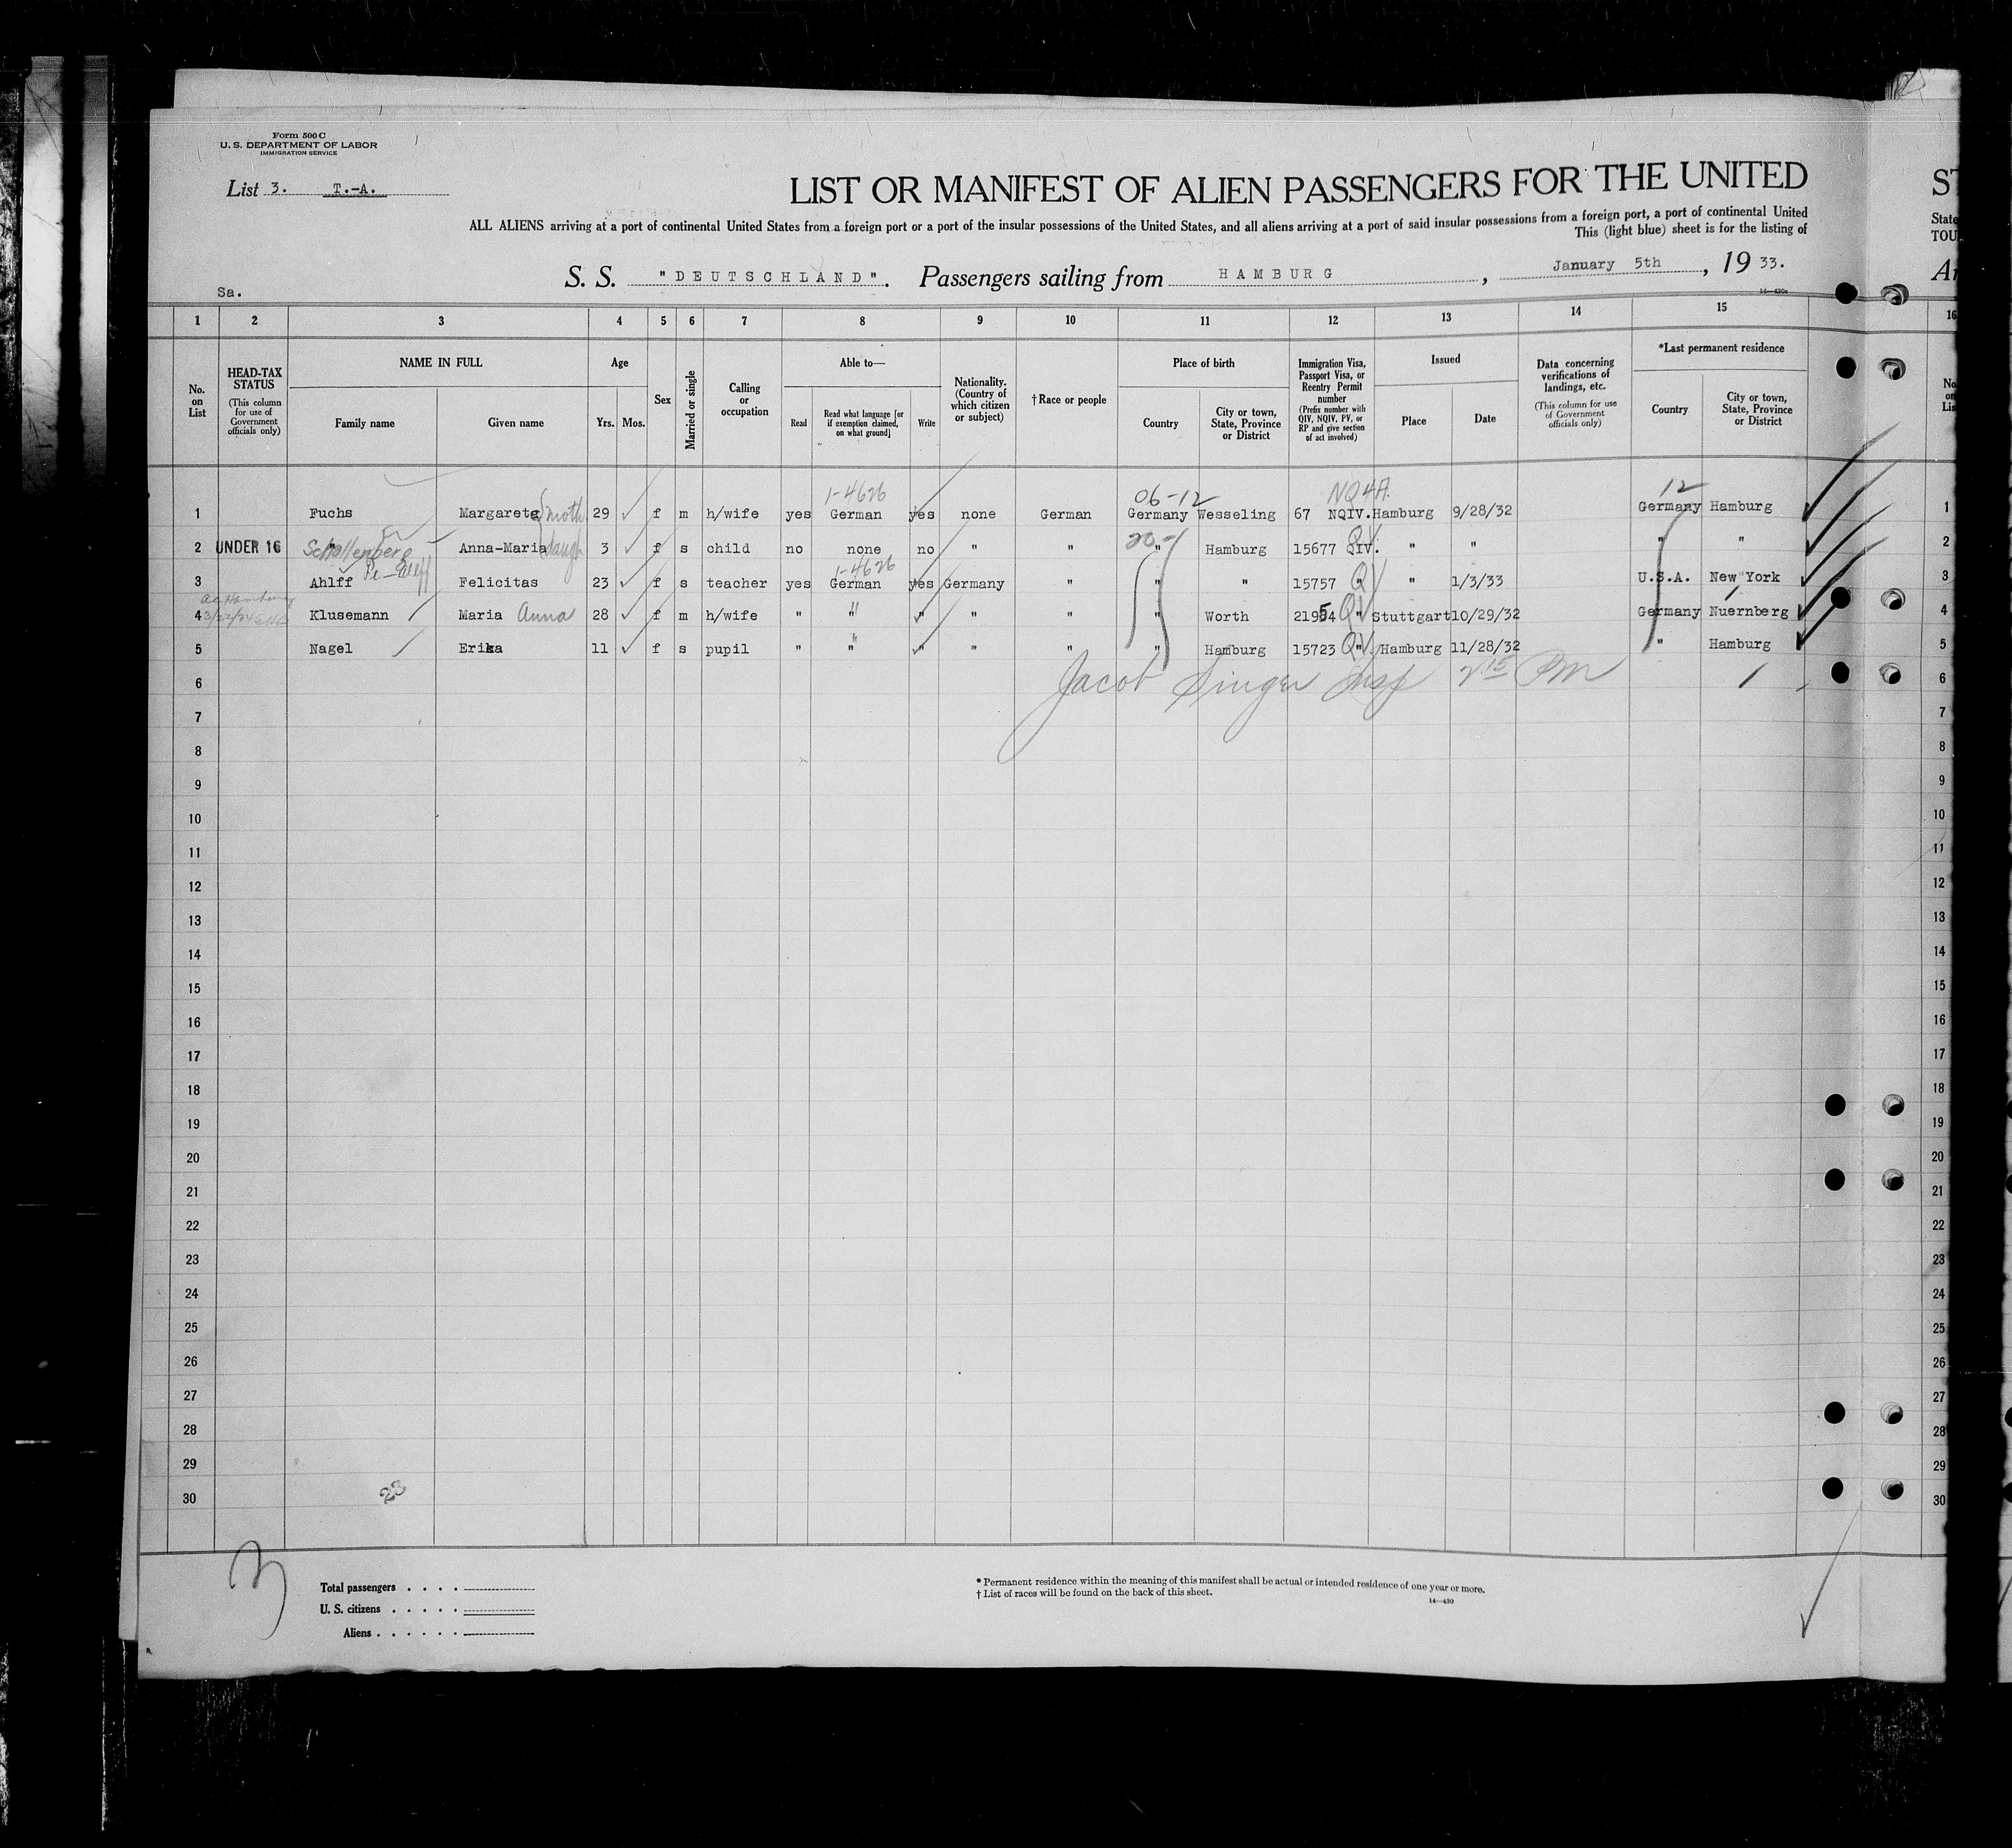 Form 500 C
U. S. DEPARTMENT OF LABOR
IMMIGRATION SERVICE
List 3. T.-A.
LIST OR MANIFEST OF ALIEN PASSENGERS FOR THE UNITED
ALL ALIENS arriving at a port of continental United States from a foreign port or a port of the insular possessions of the United States, and all aliens arriving at a port of said insular possessions from a foreign port, a port of continental United
This (light blue) sheet is for the listing of
S. S. "DEUTSCHLAND". Passengers sailing from HAMBURG, January 5th, 19 33.
Sa.
14—430
1 2 3 4 5 6 7 8 9 10 11 12 13 14 15 16
No. on List
HEAD-TAX STATUS (This column for use of Government officials only)
NAME IN FULL Family name Given name
Age Yrs. Mos.
Sex
Married or single
Calling or occupation
Able to— Read Read what language [or if exemption claimed, on what ground] Write
Nationality. (Country of which citizen or subject)
† Race or people
Place of birth Country City or town, State, Province or District
Immigration Visa, Passport Visa, or Reentry Permit number (Prefix number with QIV, NQIV, PV, or RP and give section of act involved)
Issued Place Date
Data concerning verifications of landings, etc. (This column for use of Government officials only)
*Last permanent residence Country City or town, State, Province or District
1-4626 06-12 NQ4A 12
1 Fuchs Margarete moth 29 f m h/wife yes German yes none German Germany Wesseling 67 NQIV. Hamburg 9/28/32 Germany Hamburg 1
2 UNDER 16 " Schallenberg Anna-Maria daugh 3 f s child no none no " " " Hamburg 15677 QIV. " " " " 2
1-4626
3 Ahlff Felicitas 23 f s teacher yes German yes Germany " " " 15757 " Q " 1/3/33 U.S.A. New York 3
4 Klusemann Maria Anna 28 f m h/wife " " " " " " Worth 21954 " Stuttgart 10/29/32 Germany Nuernberg 4
5 Nagel Erika 11 f s pupil " " " " " " Hamburg 15723 " Hamburg 11/28/32 " Hamburg 5
6 Jacob Singer Insp 2 15 PM 6
7 7
8 8
9 9
10 10
11 11
12 12
13 13
14 14
15 15
16 16
17 17
18 18
19 19
20 20
21 21
22 22
23 23
24 24
25 25
26 26
27 27
28 28
29 29
30 30
23
3
Total passengers . . . .
U. S. citizens . . . . .
Aliens . . . . . .
* Permanent residence within the meaning of this manifest shall be actual or intended residence of one year or more.
† List of races will be found on the back of this sheet.
14—430